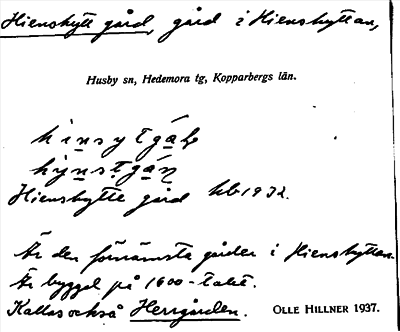 Hienshytte gård, gård i Hienshyttan,
Husby sn, Hedemora tg, Kopparbergs län.
hinsytgáḷ
hýnstgáṇ
Hienshytte gård hb 1932.
Är den förnämsta gården i Hienshyttan.
Är byggd på 1600-talet.
Kallas också Herrgården. OLLE HILLNER 1937.